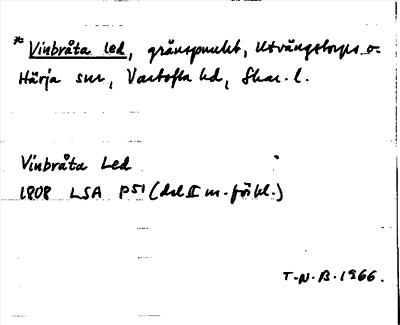 * Vinbråta led, gränspunkt, Utvängstorps o.
Härja snr, Vartofta hd, Skar. l.
Vinbråta Led
1808 LSA P51 (del II m. förkl.)
T.N.B. 1966.